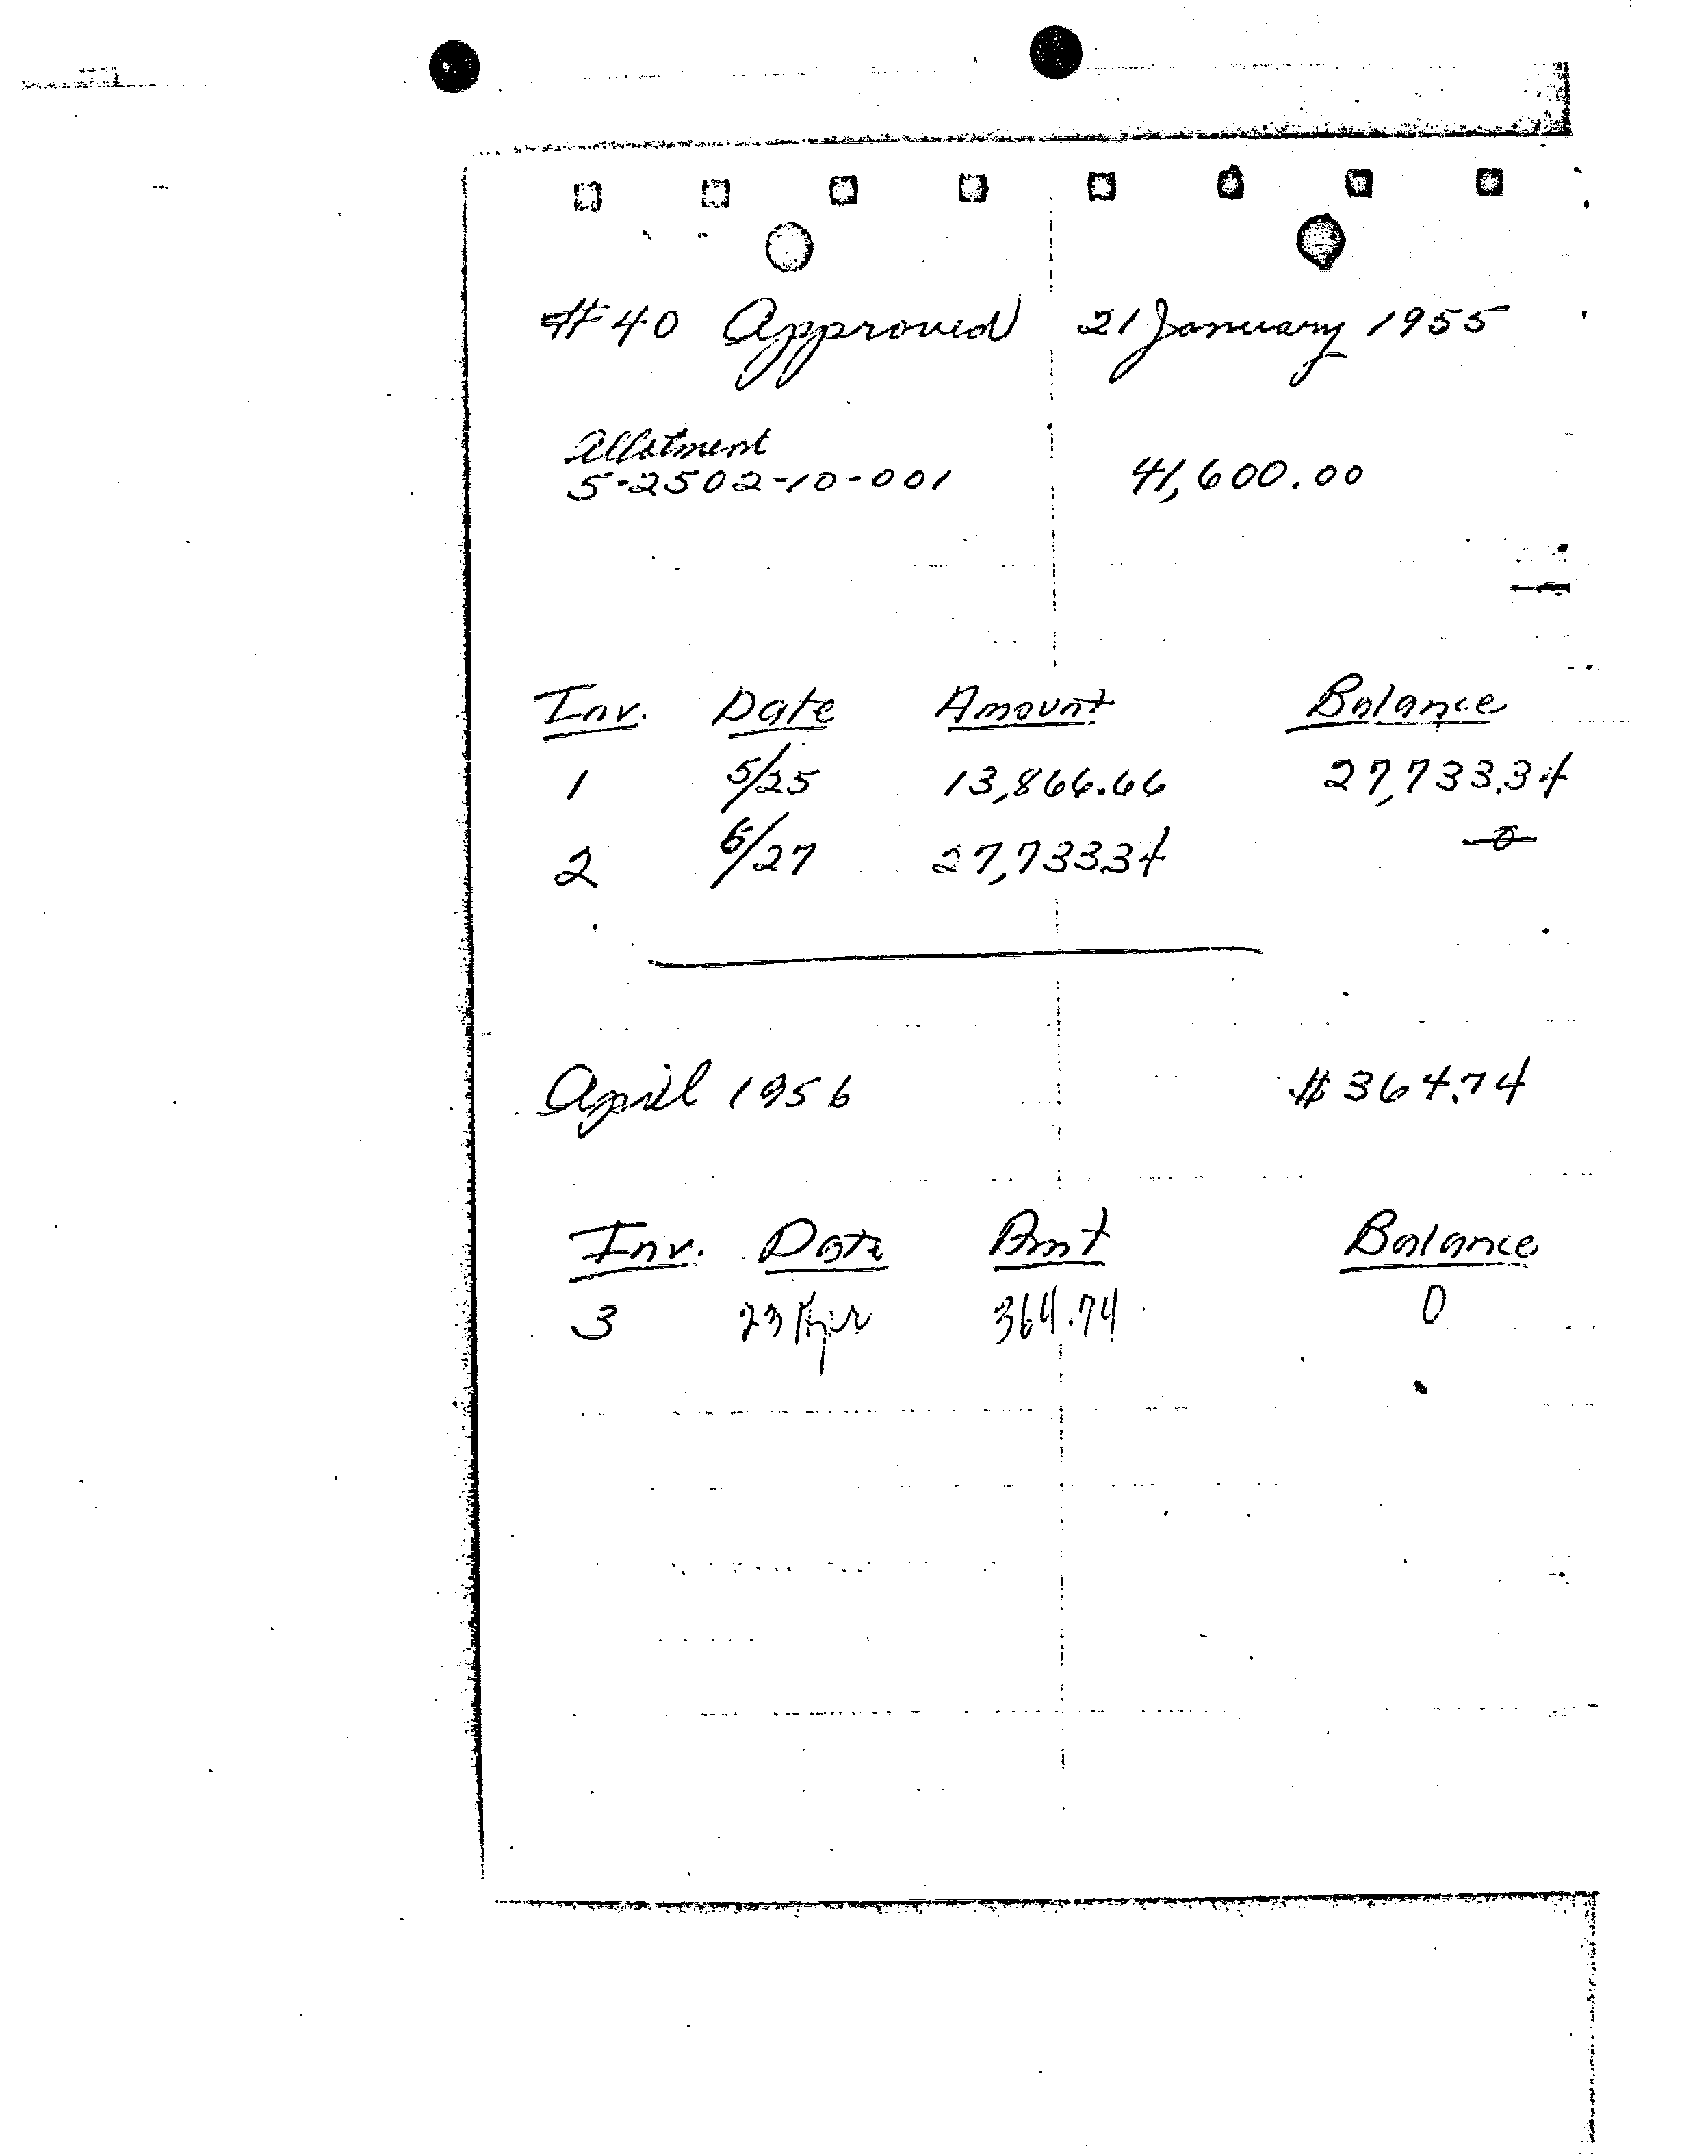 #40 Approved 21 January 1955
Allotment
5-2502-10-001 41,600.00
Inv. Date Amount Balance
1 5/25 13,866.66 27,733.34
2 6/27 27,733.34 -0-
April 1956 $364.74
Inv. Date Amt Balance
3 23 Apr 364.74 0